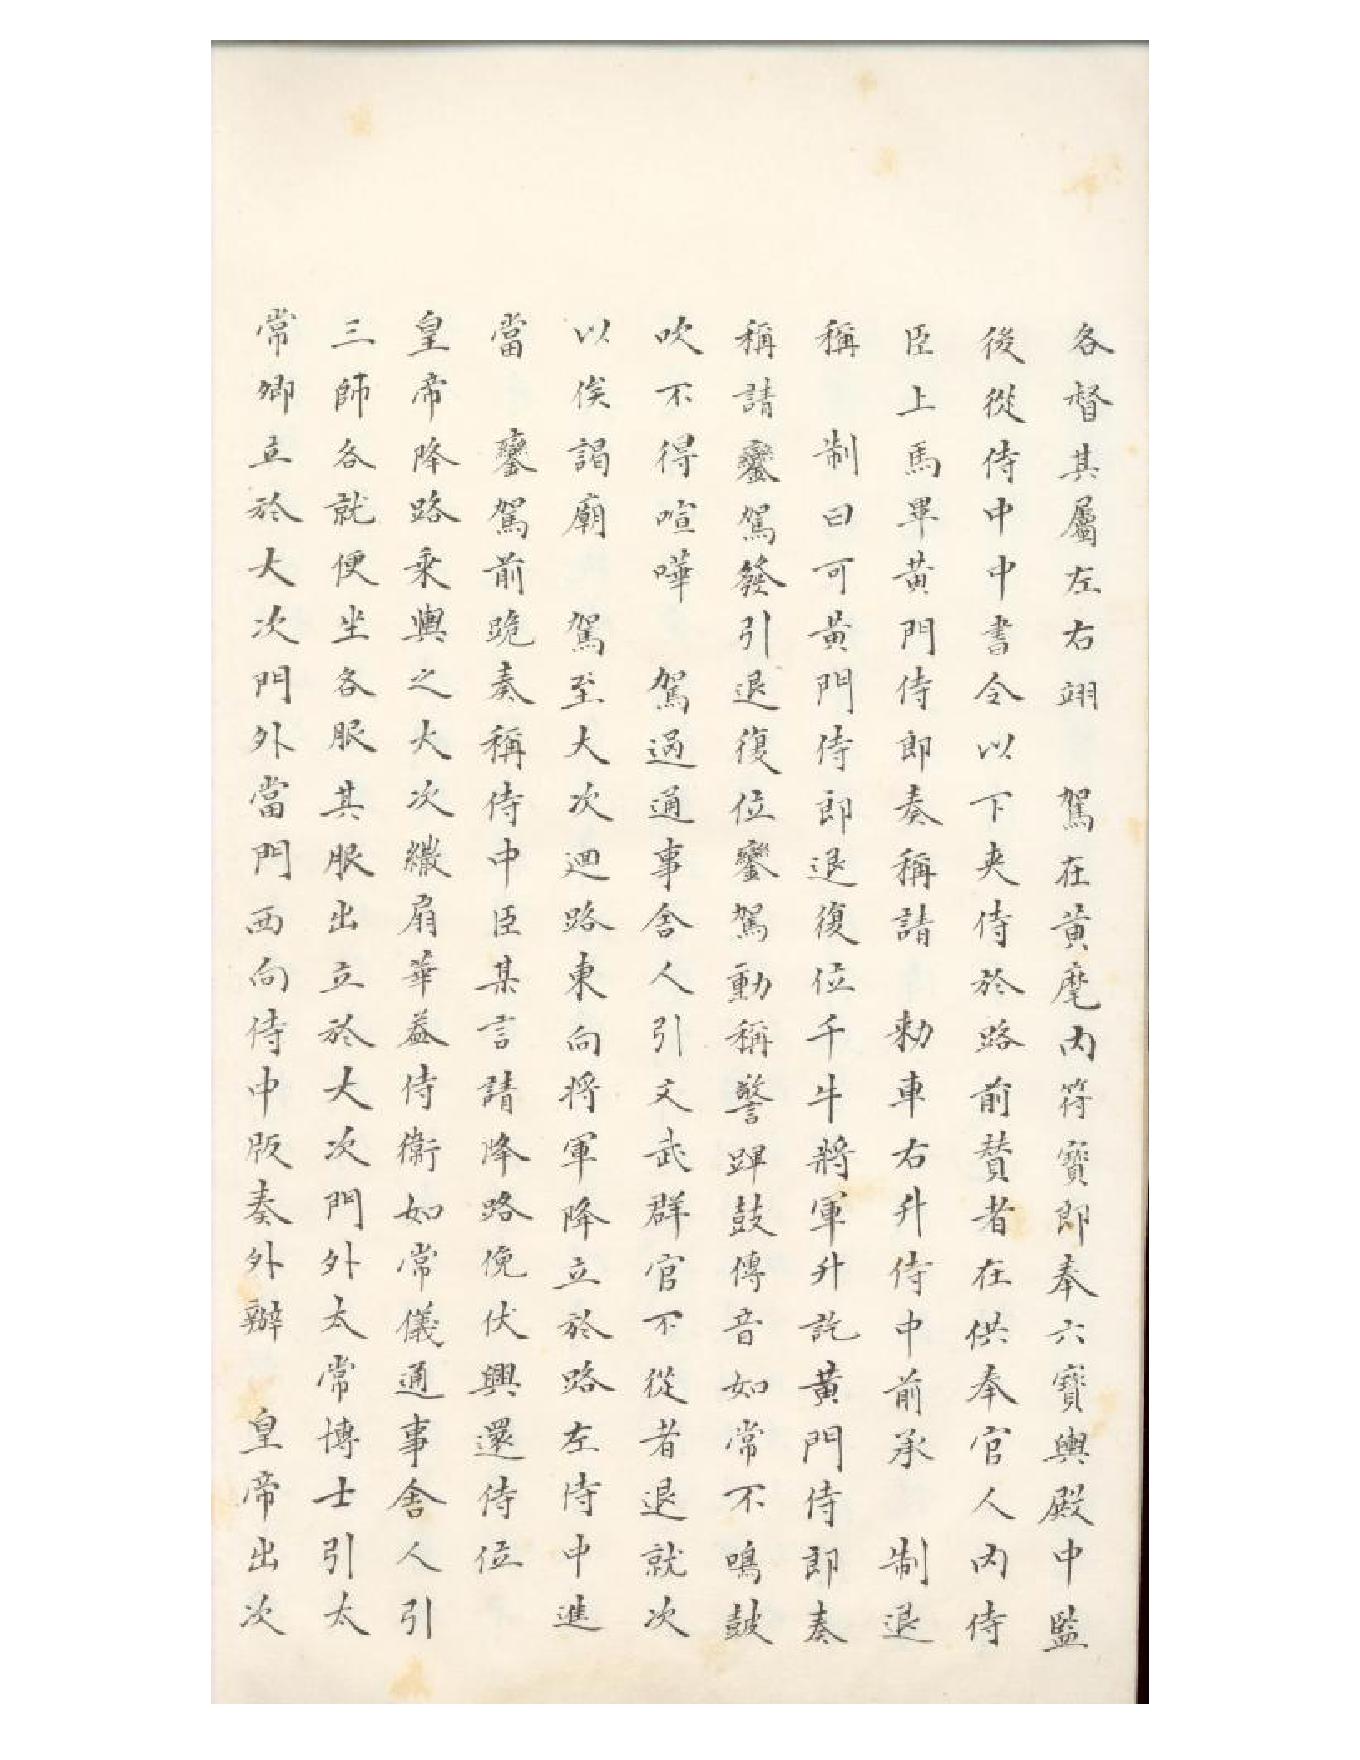 各督其屬左右翊　駕在黃麾内符寶郎奉六寶輿殿中監
後從侍中中書令以下夾侍於路前贊者在供奉官人内侍
臣上馬畢黃門侍郎奏稱請　勑車右升侍中前承　制退
稱　制曰可黃門侍郎退復位千牛將軍升訖黃門侍郎奏
稱請鑾駕發引退復位鑾駕動稱警蹕鼓傳音如常不鳴鼓
吹不得喧嘩　駕過通事舍人引文武群官不從者退就次
以俟謁廟　駕至大次迴路東向將軍降立於路左侍中進
當　鑾駕前跪奏稱侍中臣某言請降路俛伏興還侍位
皇帝降路乘輿之大次繖扇華蓋侍衛如常儀通事舍人引
三師各就便坐各服其服出立於大次門外太常博士引太
常卿立於大次門外當門西向侍中版奏外辦　皇帝出次